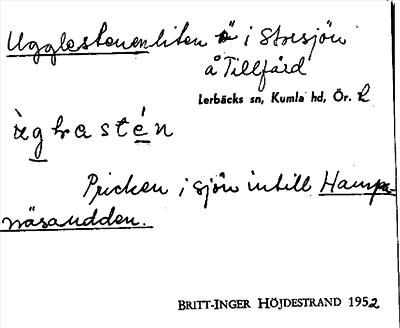 Ugglestenen liten ö i Storsjön
å Tillfård
Lerbäcks sn, Kumla hd, Ör. L
ùgḻasté̱n
Pricken i sjön intill Hampe-
näsaudden.
BRITT-INGER HÖJDESTRAND 1952